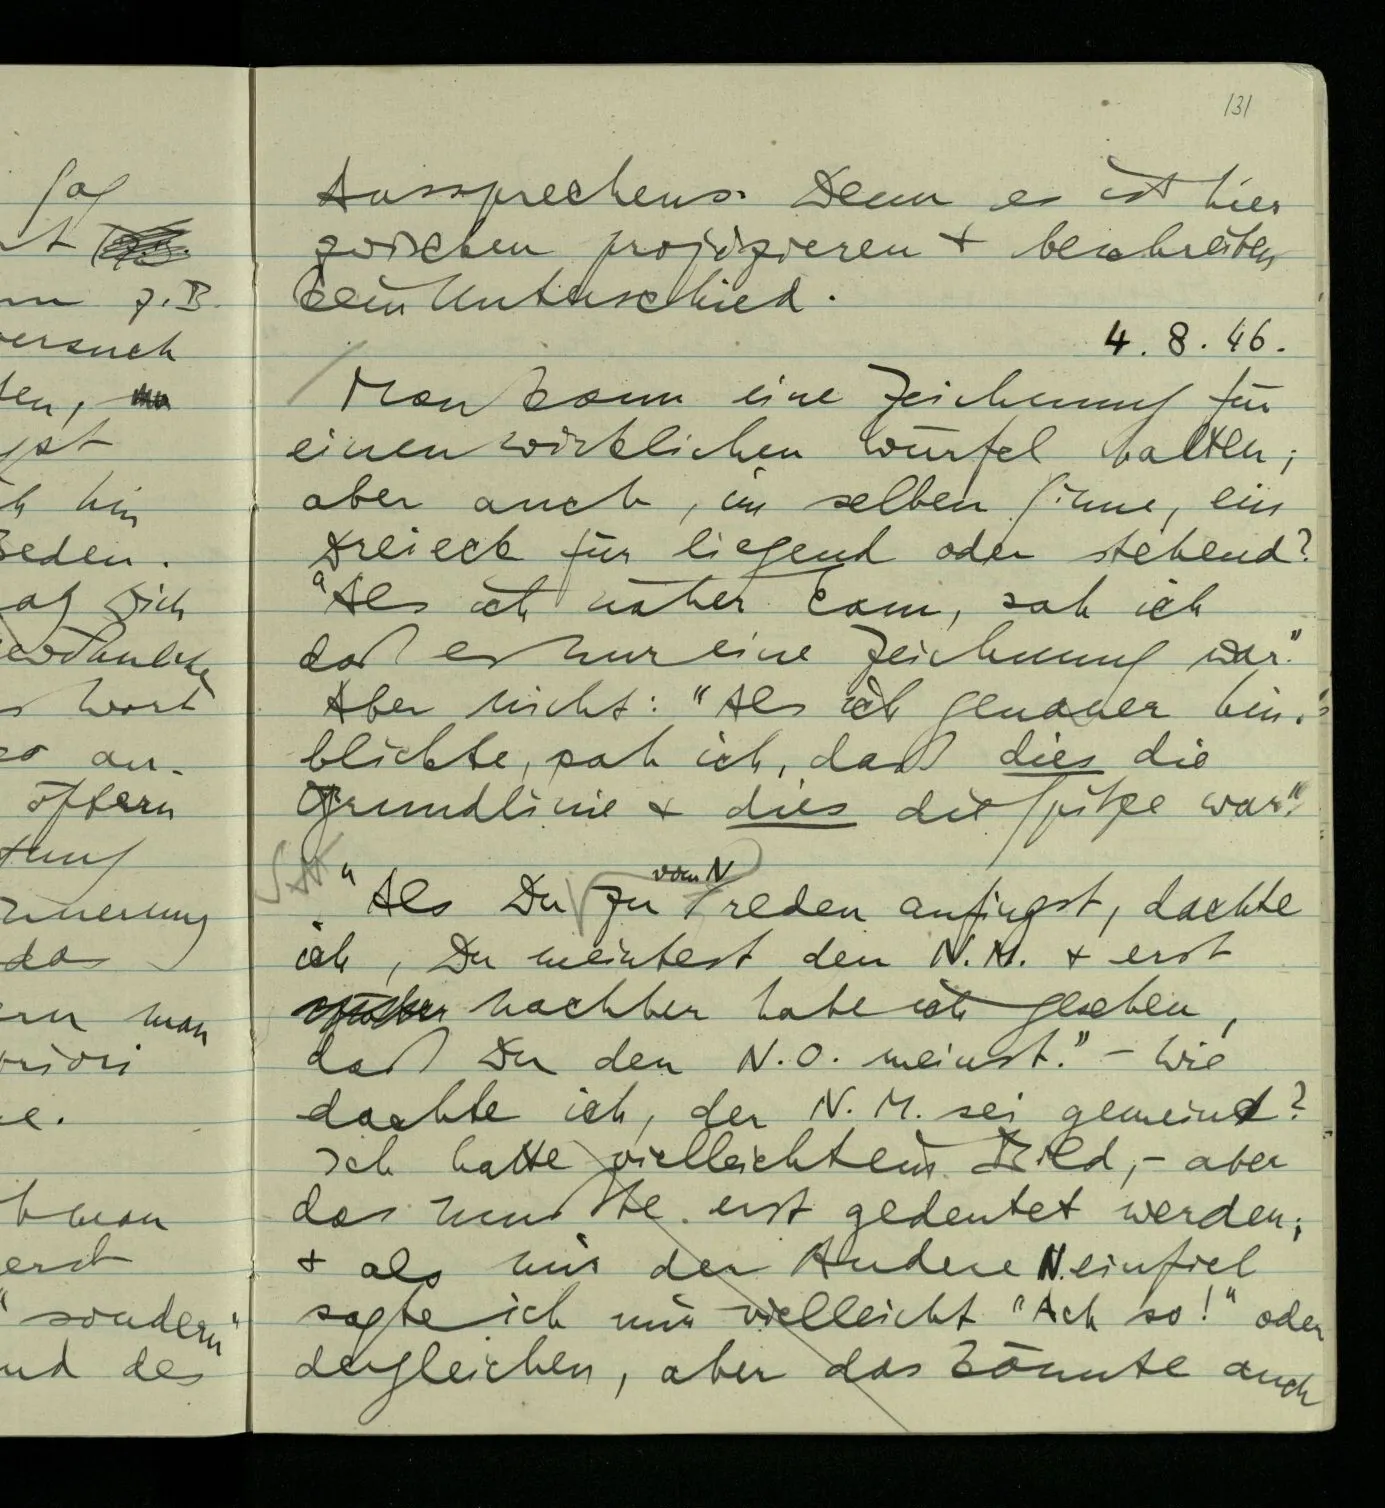 131
Aussprechens. Denn es ist hier
zwischen projizieren + beschreiben
kein Unterschied.
4. 8. 46.
Man kann eine Zeichnung für
einen wirklichen Würfel halten;
aber auch, im selben Sinne, ein
Dreieck für liegend oder stehend?
"Als ich näher kam, sah ich
daß es nur eine Zeichnung war."
Aber nicht: "Als ich genauer hin-
blickte, sah ich, daß dies die
Grundlinie + dies die Spitze war."
"Als Du zu vom N reden anfingst, dachte
ich, Du meintest den N.M. + erst
nachher habe ich gesehen,
daß Du den N.O. meinst." – Wie
dachte ich, der N.M. sei gemeint?
Ich hatte vielleicht ein Bild, – aber
das mußte erst gedeutet werden;
+ als mir der Andere N. einfiel
sagte ich mir vielleicht "Ach so!" oder
dergleichen, aber das könnte auch
z.B.
versuch
ich bin
Wort
so an-
öftern
man
erst
" sondern"
und des